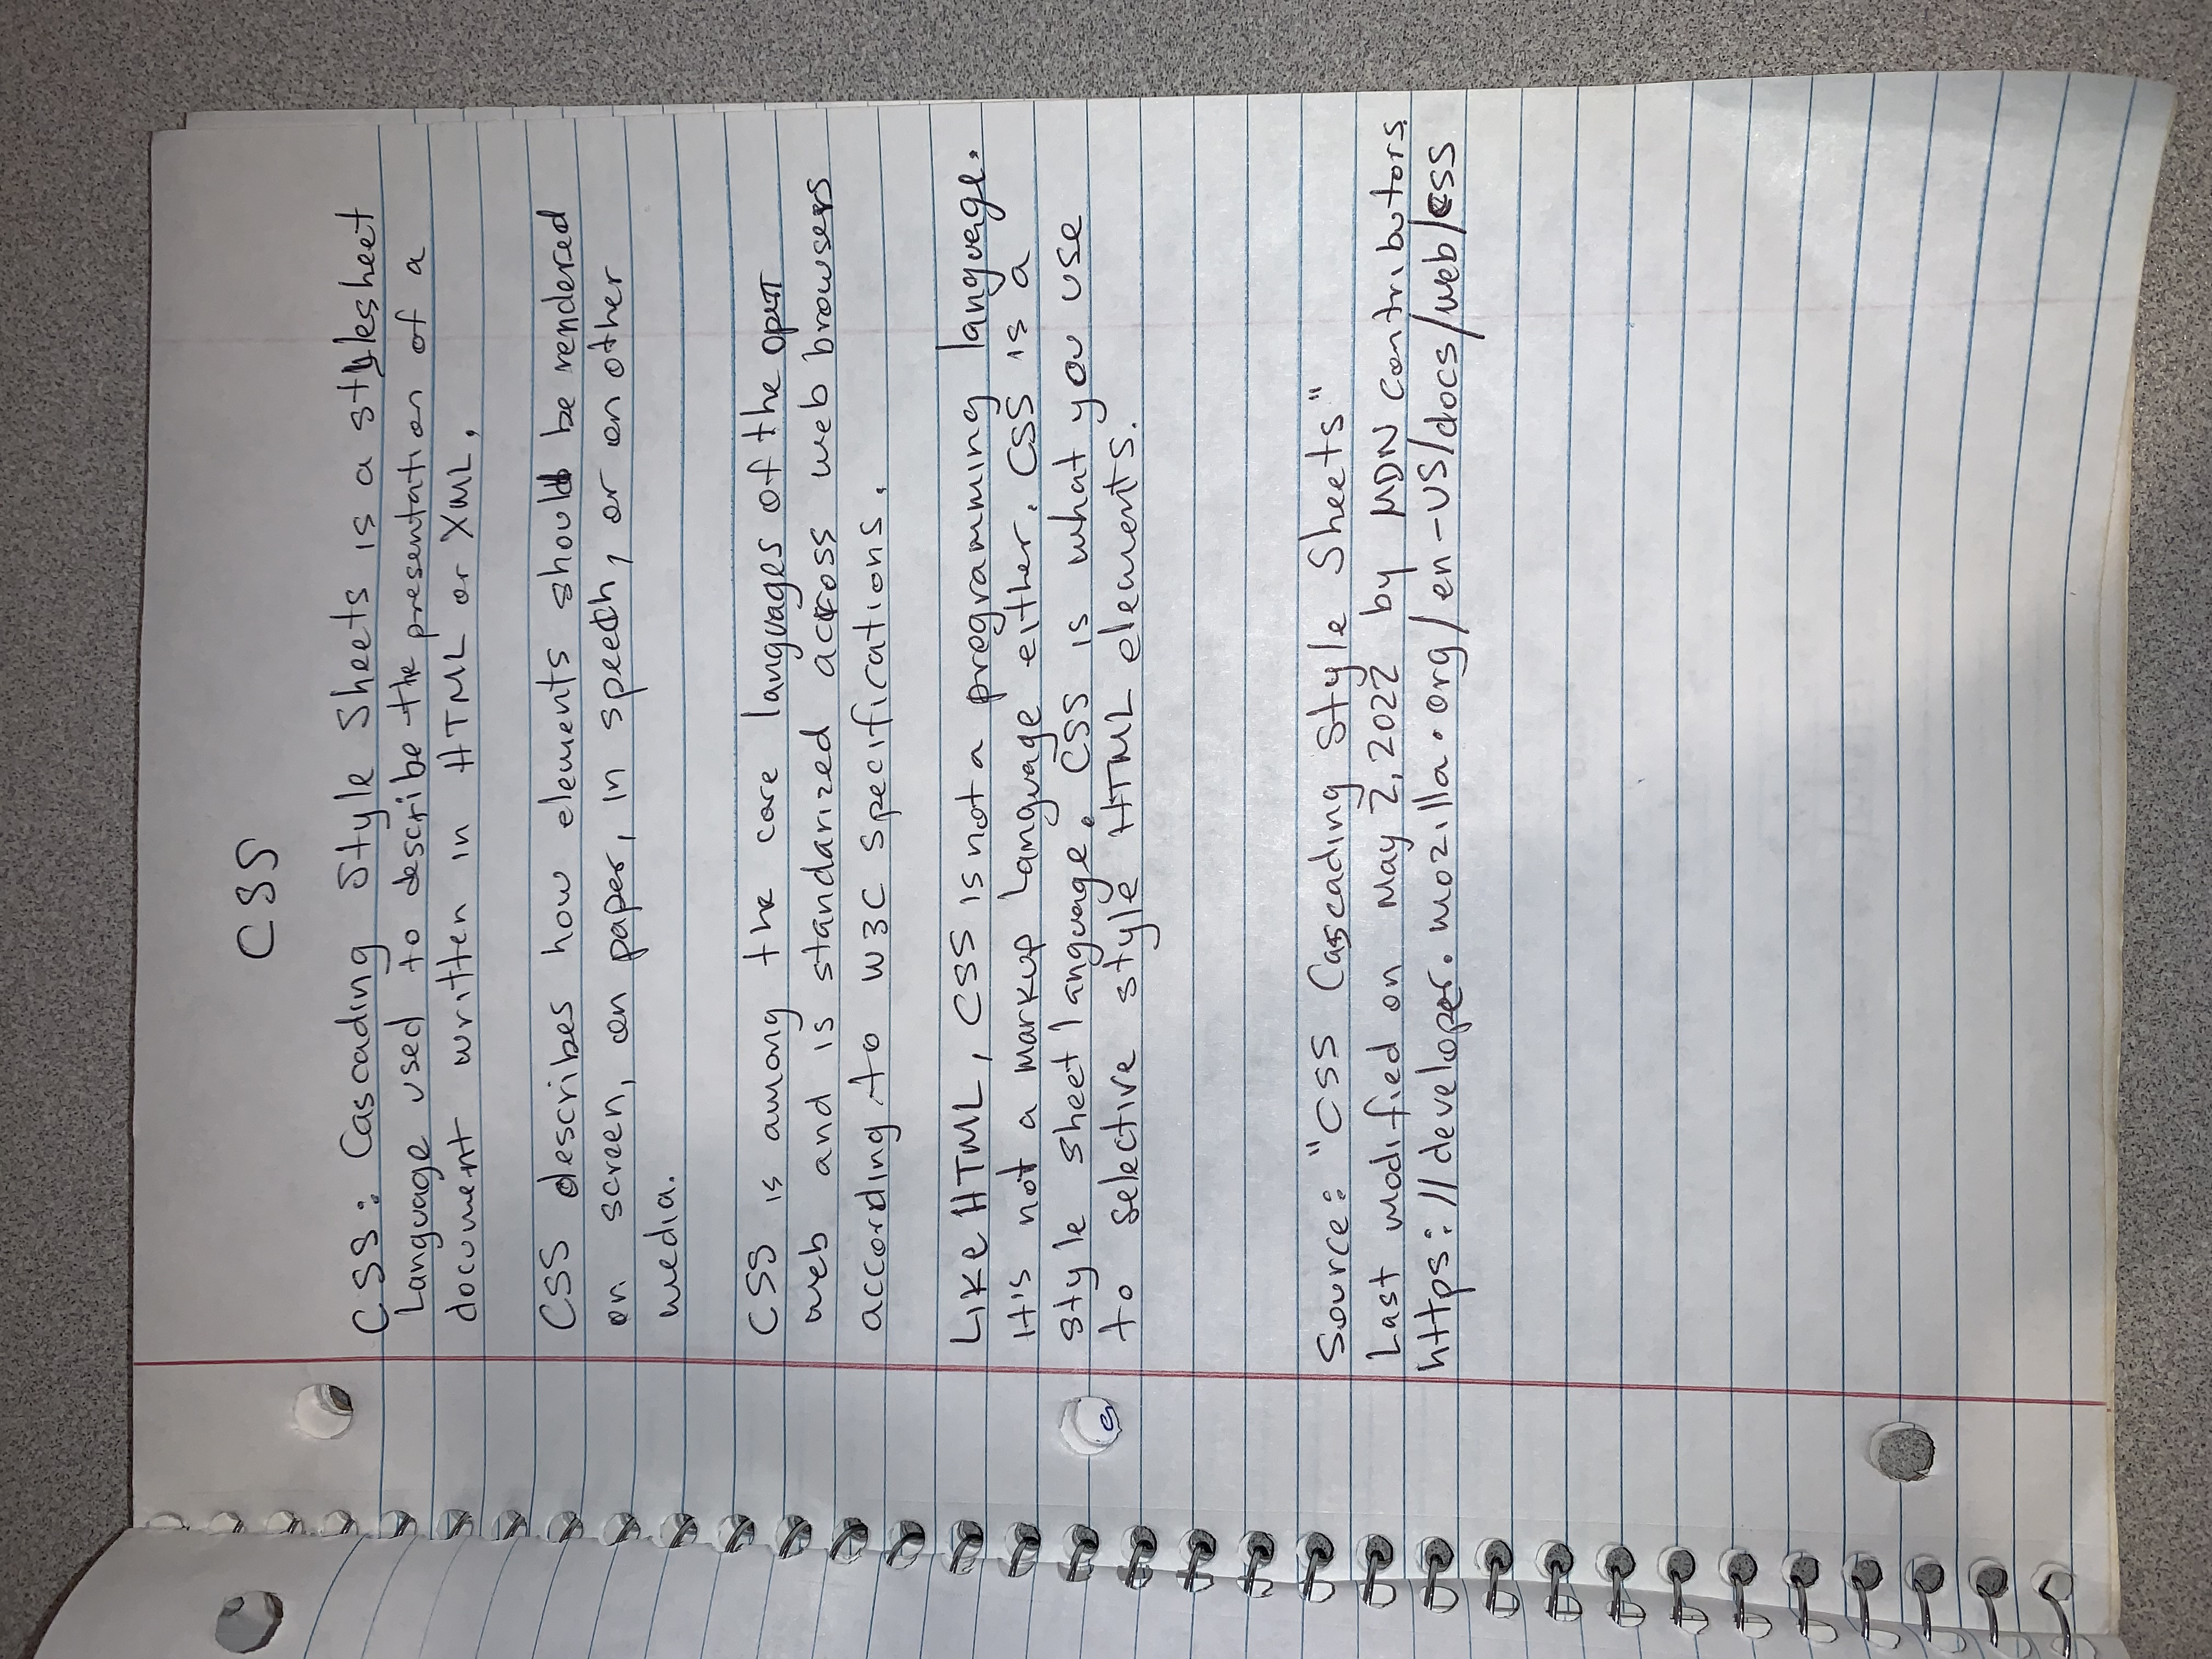 CSS
CSS: Cascading Style Sheets is a stylesheet
Language used to describe the presentation of a
document written in HTML or XML.
CSS describes how elements should be rendered
on screen, on paper, in speech, or on other
media.
CSS is among the core languages of the open
web and is standarized across web browsers
according to W3C specifications.
Like HTML, CSS is not a programming language.
It's not a markup language either. CSS is a
style sheet language. CSS is what you use
to selective style HTML elements.
Source: "CSS Cascading Style Sheets"
Last modified on May 2, 2022 by MDN contributors.
https://developer.mozilla.org/en-US/docs/web/css